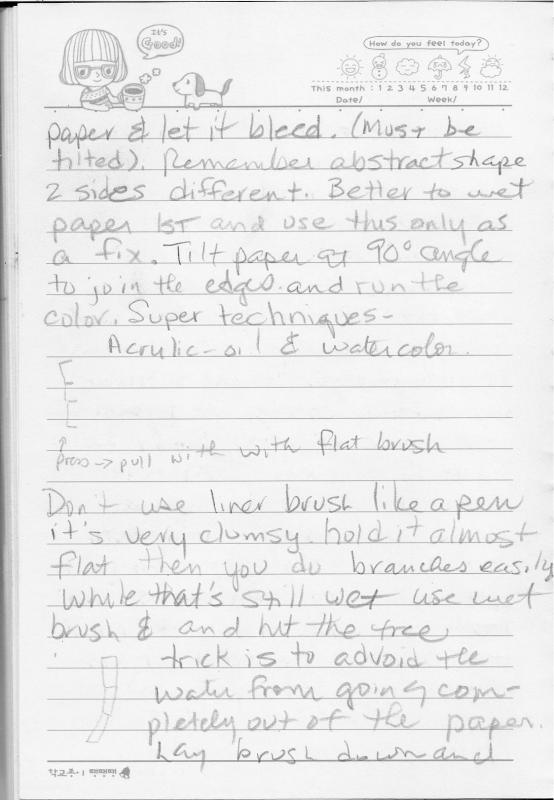 It's Good!
How do you feel today?
This month : 1 2 3 4 5 6 7 8 9 10 11 12
Date/ Week/
paper & let it bleed. (Must be
tilted). Remember abstract shape
2 sides different. Better to wet
paper 1ST and use this only as
a fix. Tilt paper at 90° angle
to join the edges and run the
color. Super techniques-
Acrylic-oil & watercolor.
press → pull with with flat brush
Don't use liner brush like a pen
it's very clumsy hold it almost
flat then you do branches easily
While that's still wet use wet
brush & and hit the tree
trick is to advoid the
water from going com-
pletely out of the paper.
Lay brush down and
학교종이 땡땡땡